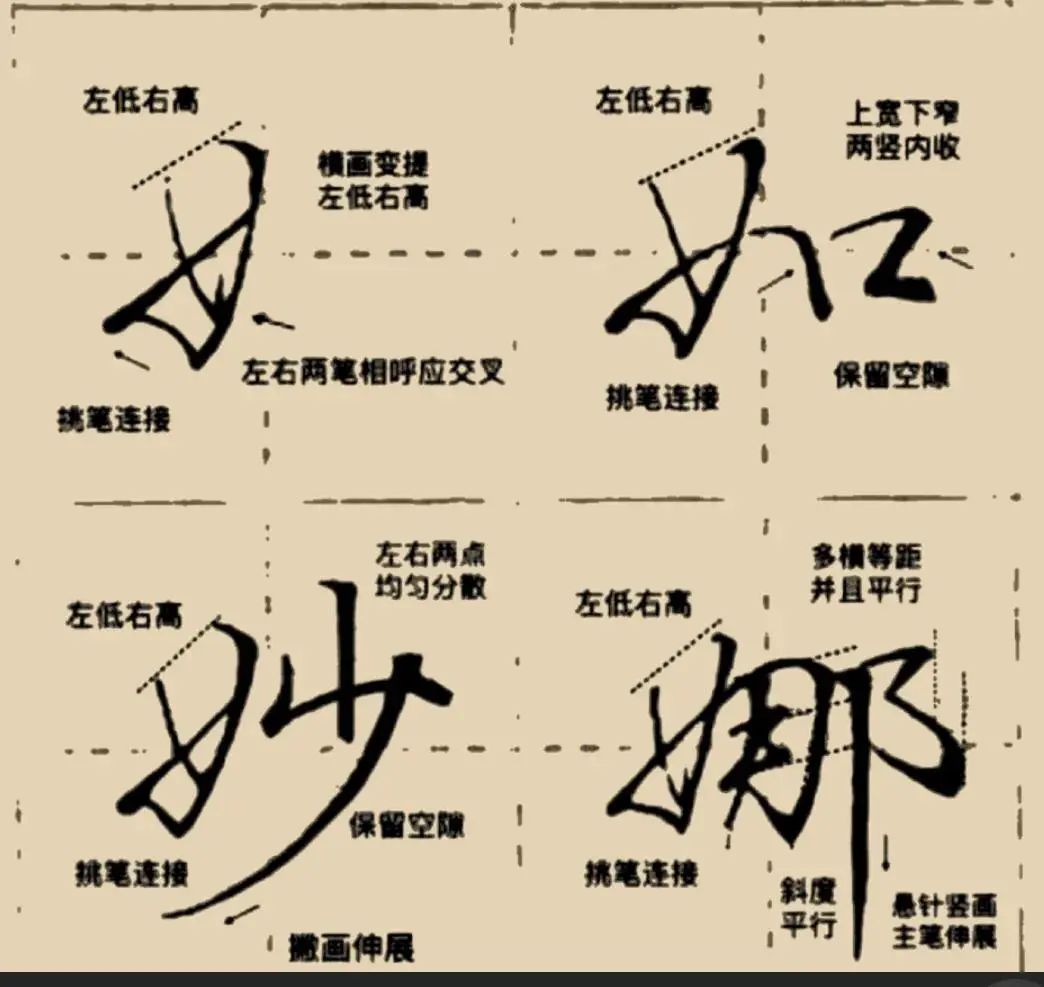 左低右高
横画变提
左低右高
左右两笔相呼应交叉
挑笔连接
女
左低右高
上宽下窄
两竖内收
如
保留空隙
挑笔连接
左右两点
均匀分散
左低右高
妙
保留空隙
挑笔连接
撇画伸展
多横等距
并且平行
左低右高
娜
挑笔连接
斜度
平行
悬针竖画
主笔伸展